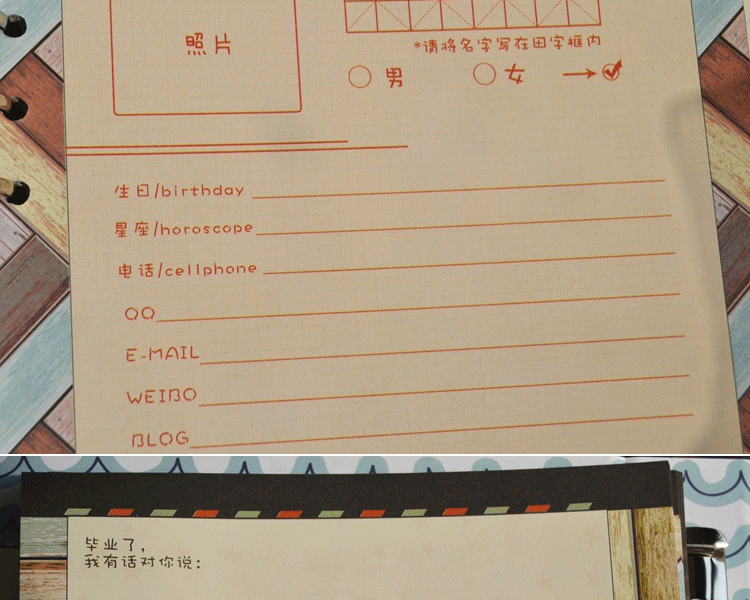 照片
*请将名字写在田字框内
男 女
生日/birthday
星座/horoscope
电话/cellphone
QQ
E-MAIL
WEIBO
BLOG
毕业了，
我有话对你说：